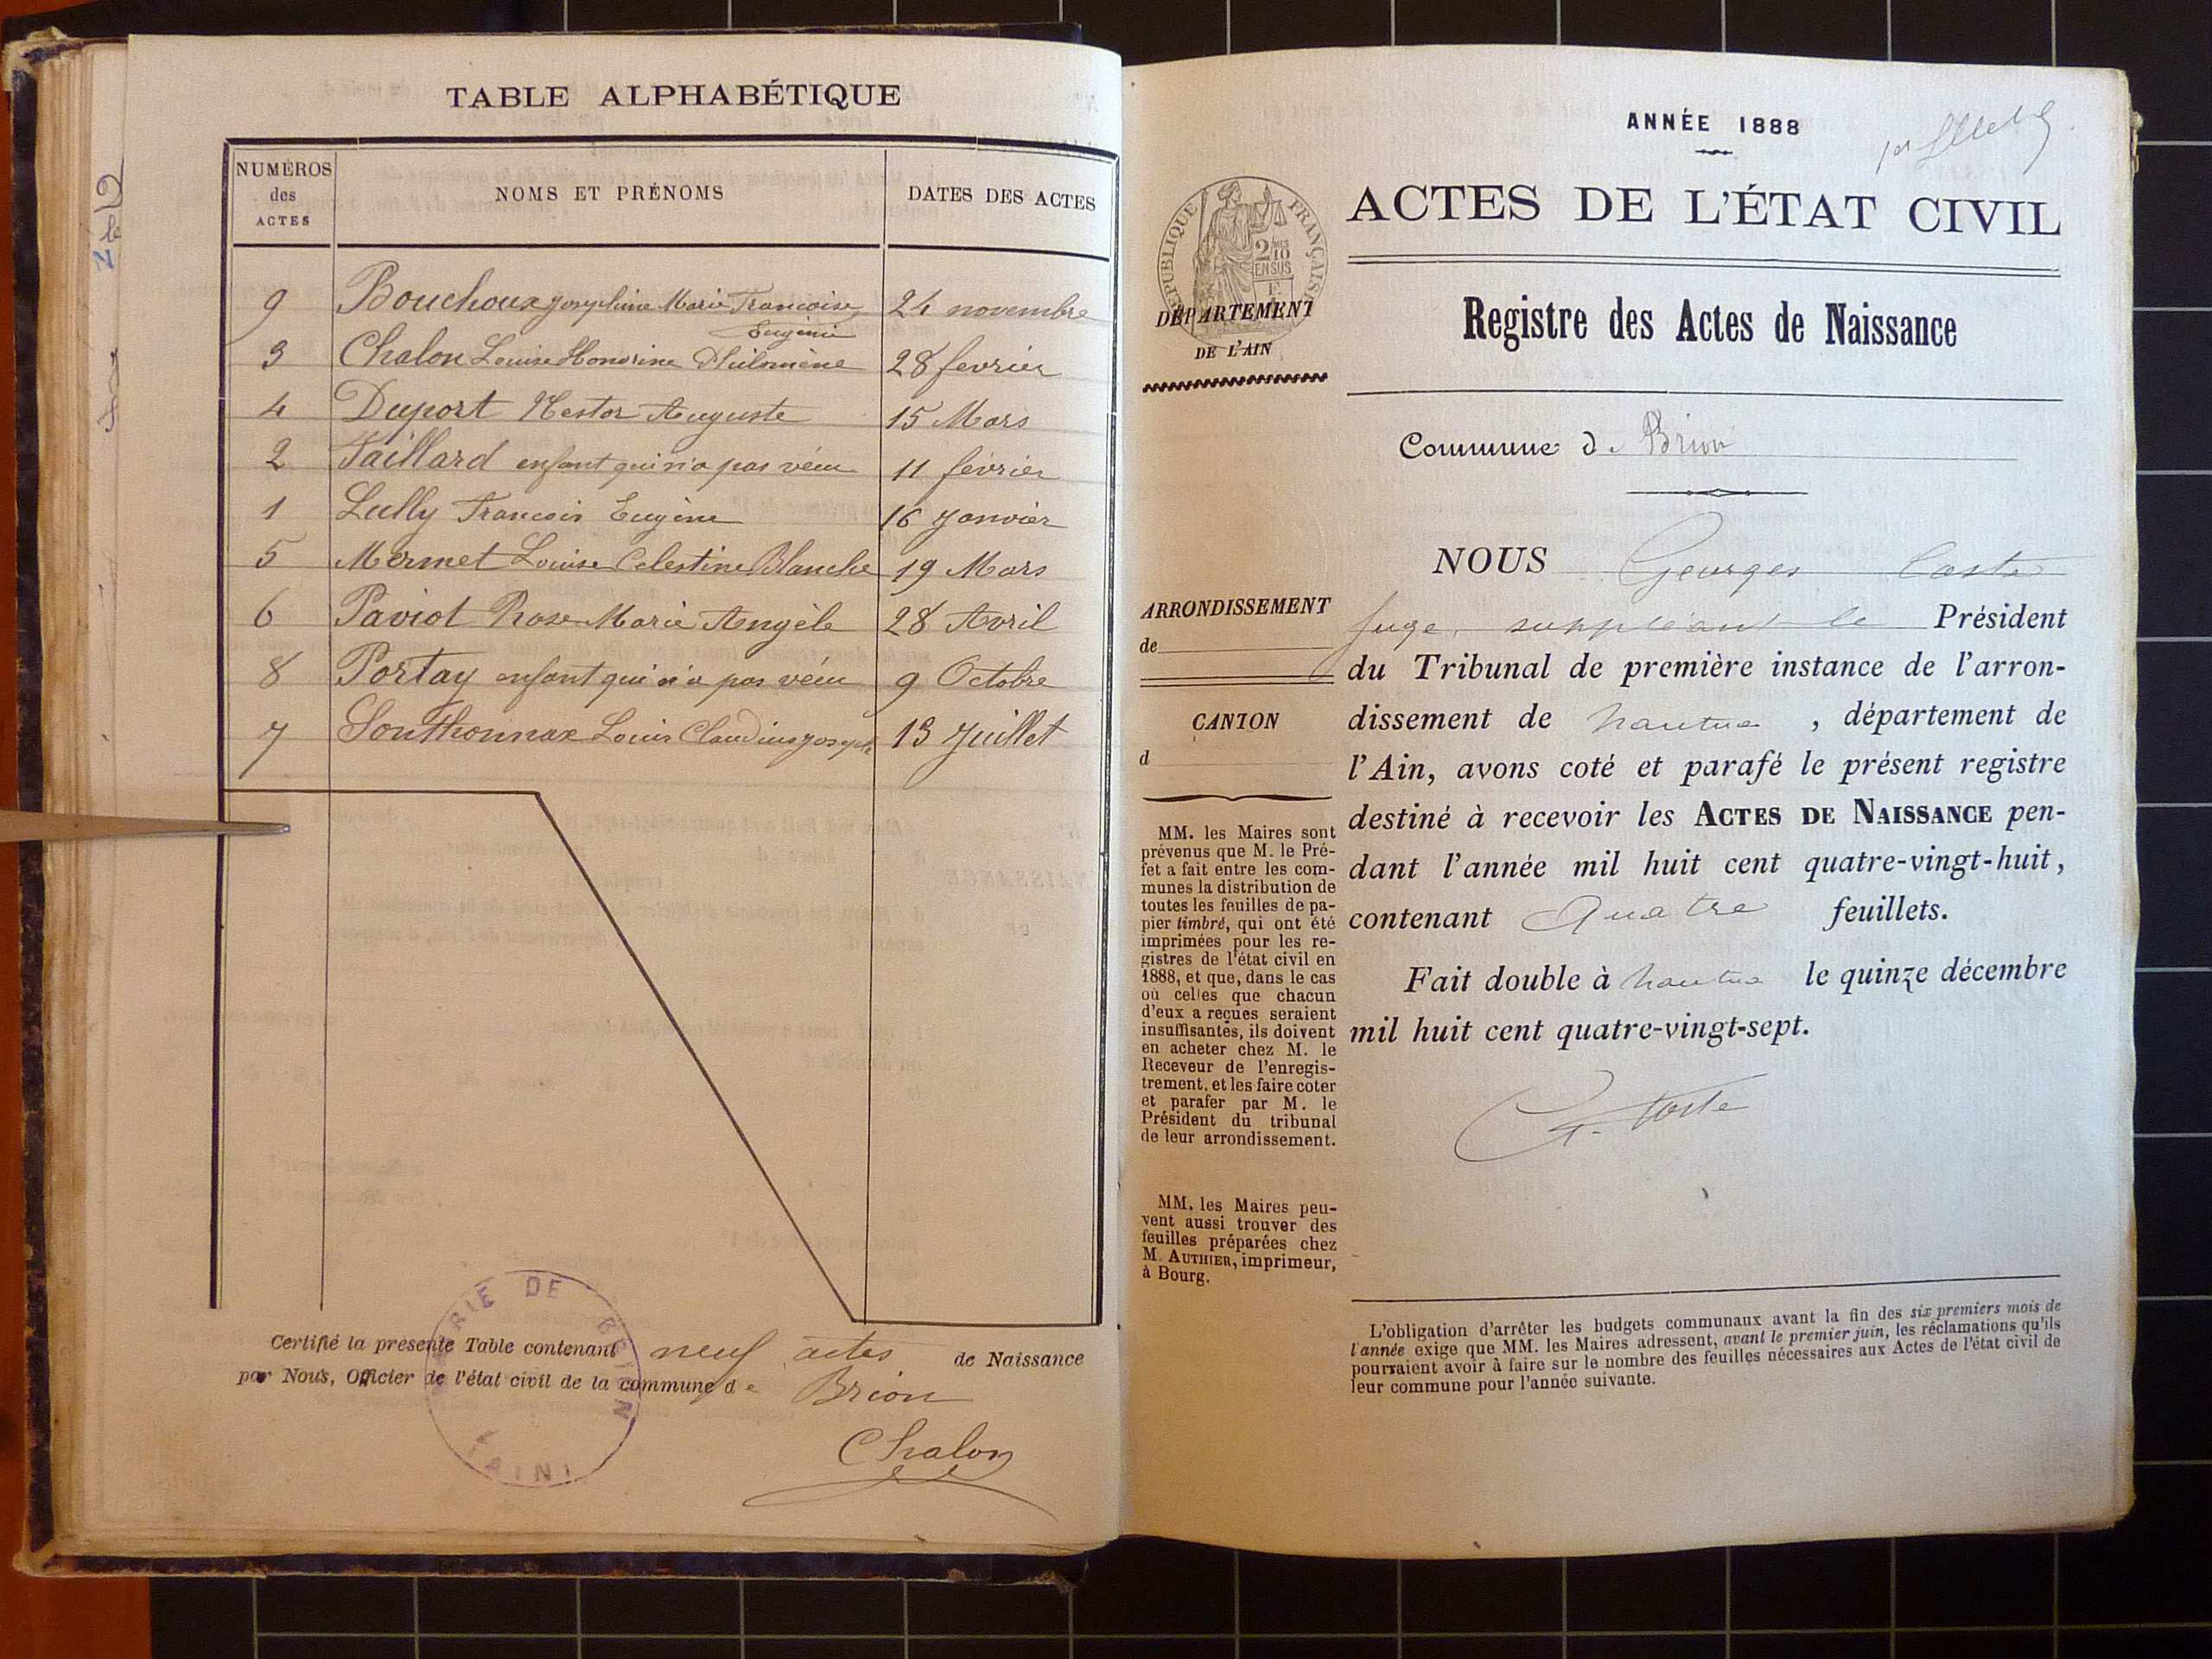 TABLE ALPHABÉTIQUE
NUMÉROS des ACTES
NOMS ET PRÉNOMS
DATES DES ACTES
9 Bouchoux Josephine Marie Francoise 24 novembre
Eugénie
3 Chalon Louise Honorine Philomène 28 fevrier
4 Duport Nestor Auguste 15 Mars
2 Jaillard enfant qui n'a pas vécu 11 fevrier
1 Lully Francois Eugène 16 Janvier
5 Mermet Louise Celestine Blanche 19 Mars
6 Paviot Rose Marie Angèle 28 Avril
8 Portay enfant qui n'a pas vécu 9 Octobre
7 Sonthonnax Louis Claudius Joseph 13 Juillet
Certifié la présente Table contenant neuf actes de Naissance
par Nous, Officier de l'état civil de la commune de Brion
Chalon
MAIRIE DE BRION
(AIN)
ANNÉE 1888
ACTES DE L'ÉTAT CIVIL
RÉPUBLIQUE FRANÇAISE
2/10
EN SUS
DÉPARTEMENT
DE L'AIN
Registre des Actes de Naissance
Commune de Brion
ARRONDISSEMENT
de
CANTON
d
NOUS Georges Coste
Juge suppléant le Président
du Tribunal de première instance de l'arron-
dissement de Nantua, département de
l'Ain, avons coté et parafé le présent registre
destiné à recevoir les ACTES DE NAISSANCE pen-
dant l'année mil huit cent quatre-vingt-huit,
contenant Quatre feuillets.
Fait double à Nantua le quinze décembre
mil huit cent quatre-vingt-sept.
G. Coste
MM. les Maires sont
prévenus que M. le Pré-
fet a fait entre les com-
munes la distribution de
toutes les feuilles de pa-
pier timbré, qui ont été
imprimées pour les re-
gistres de l'état civil en
1888, et que, dans le cas
où celles que chacun
d'eux a reçues seraient
insuffisantes, ils doivent
en acheter chez M. le
Receveur de l'enregis-
trement, et les faire coter
et parafer par M. le
Président du tribunal
de leur arrondissement.
MM. les Maires peu-
vent aussi trouver des
feuilles préparées chez
M. AUTHIER, imprimeur,
à Bourg.
L'obligation d'arrêter les budgets communaux avant la fin des six premiers mois de
l'année exige que MM. les Maires adressent, avant le premier juin, les réclamations qu'ils
pourraient avoir à faire sur le nombre des feuilles nécessaires aux Actes de l'état civil de
leur commune pour l'année suivante.